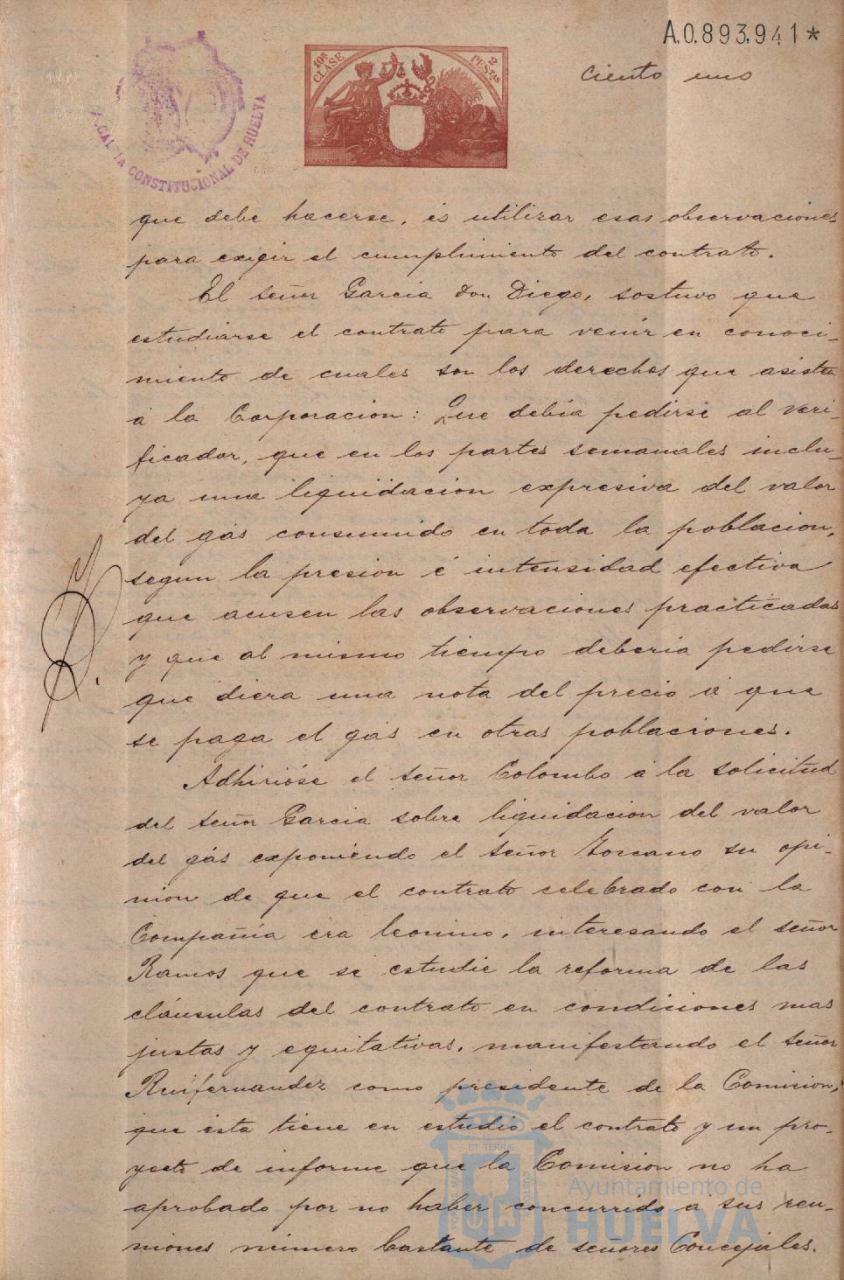 A.0.893.941*
10ª CLASE
2 PESTAS
ciento uno
ALCALDIA CONSTITUCIONAL DE HUELVA
que debe hacerse, es utilizar esas observaciones
para exigir el cumplimiento del contrato.
El señor Garcia Don Diego, sostuvo que
estudiarse el contrato para venir en conoci-
miento de cuales son los derechos que asisten
á la Corporacion: Que debia pedirse al veri-
ficador, que en los partes semanales inclu-
ya una liquidacion expresiva del valor
del gás consumido en toda la poblacion,
segun la presion é intensidad efectiva
que acusen las observaciones practicadas
y que al mismo tiempo deberia pedirse
que diera una nota del precio á que
se paga el gás en otras poblaciones.
Adhirióse el señor Colombo á la solicitud
del señor Garcia sobre liquidacion del valor
del gás exponiendo el señor Toscano su opi-
nion de que el contrato celebrado con la
Compañia era leonino, interesando el señor
Ramos que se estudie la reforma de las
cláusulas del contrato en condiciones mas
justas y equitativas, manifestando el señor
Ruifernandez como presidente de la Comision,
que ésta tiene en estudio el contrato y un pro-
yecto de informe que la Comision no ha
aprobado por no haber concurrido á sus reu-
niones número bastante de señores Concejales.
Ayuntamiento de
HUELVA